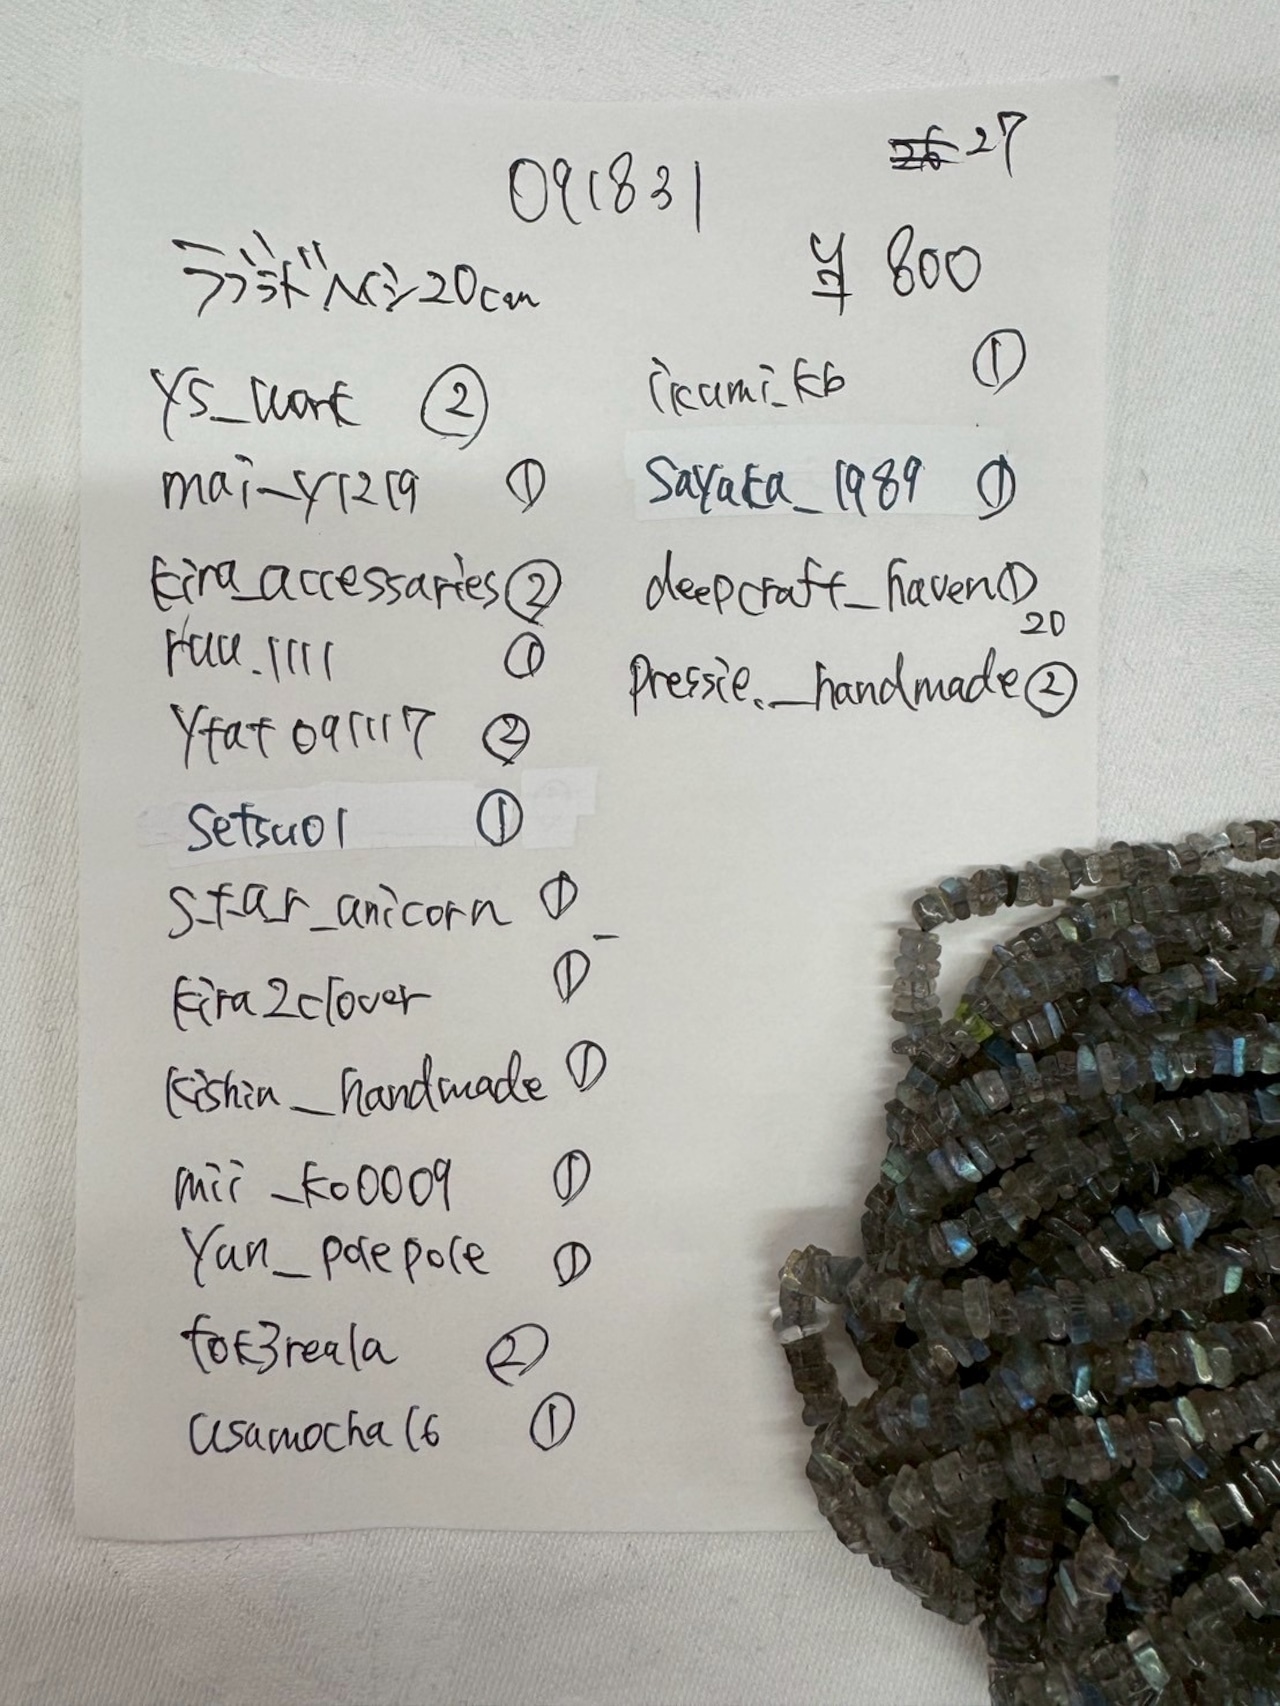 27
091831
ラブラドハイシ20cm
¥ 800
YS_work ②
mai_y1219 ①
kira_accessaries ②
ruu.1111 ①
Ytat091117 ②
Setsu01 ①
star_unicorn ①
kira2clover ①
kishin_handmade ①
mii_ko0009 ①
Yun_polepole ①
tok3reala ②
usamocha16 ①
ikumi_kb ①
Sayaka_1989 ①
deepcraft_haven ①
20
pressie._handmade ②